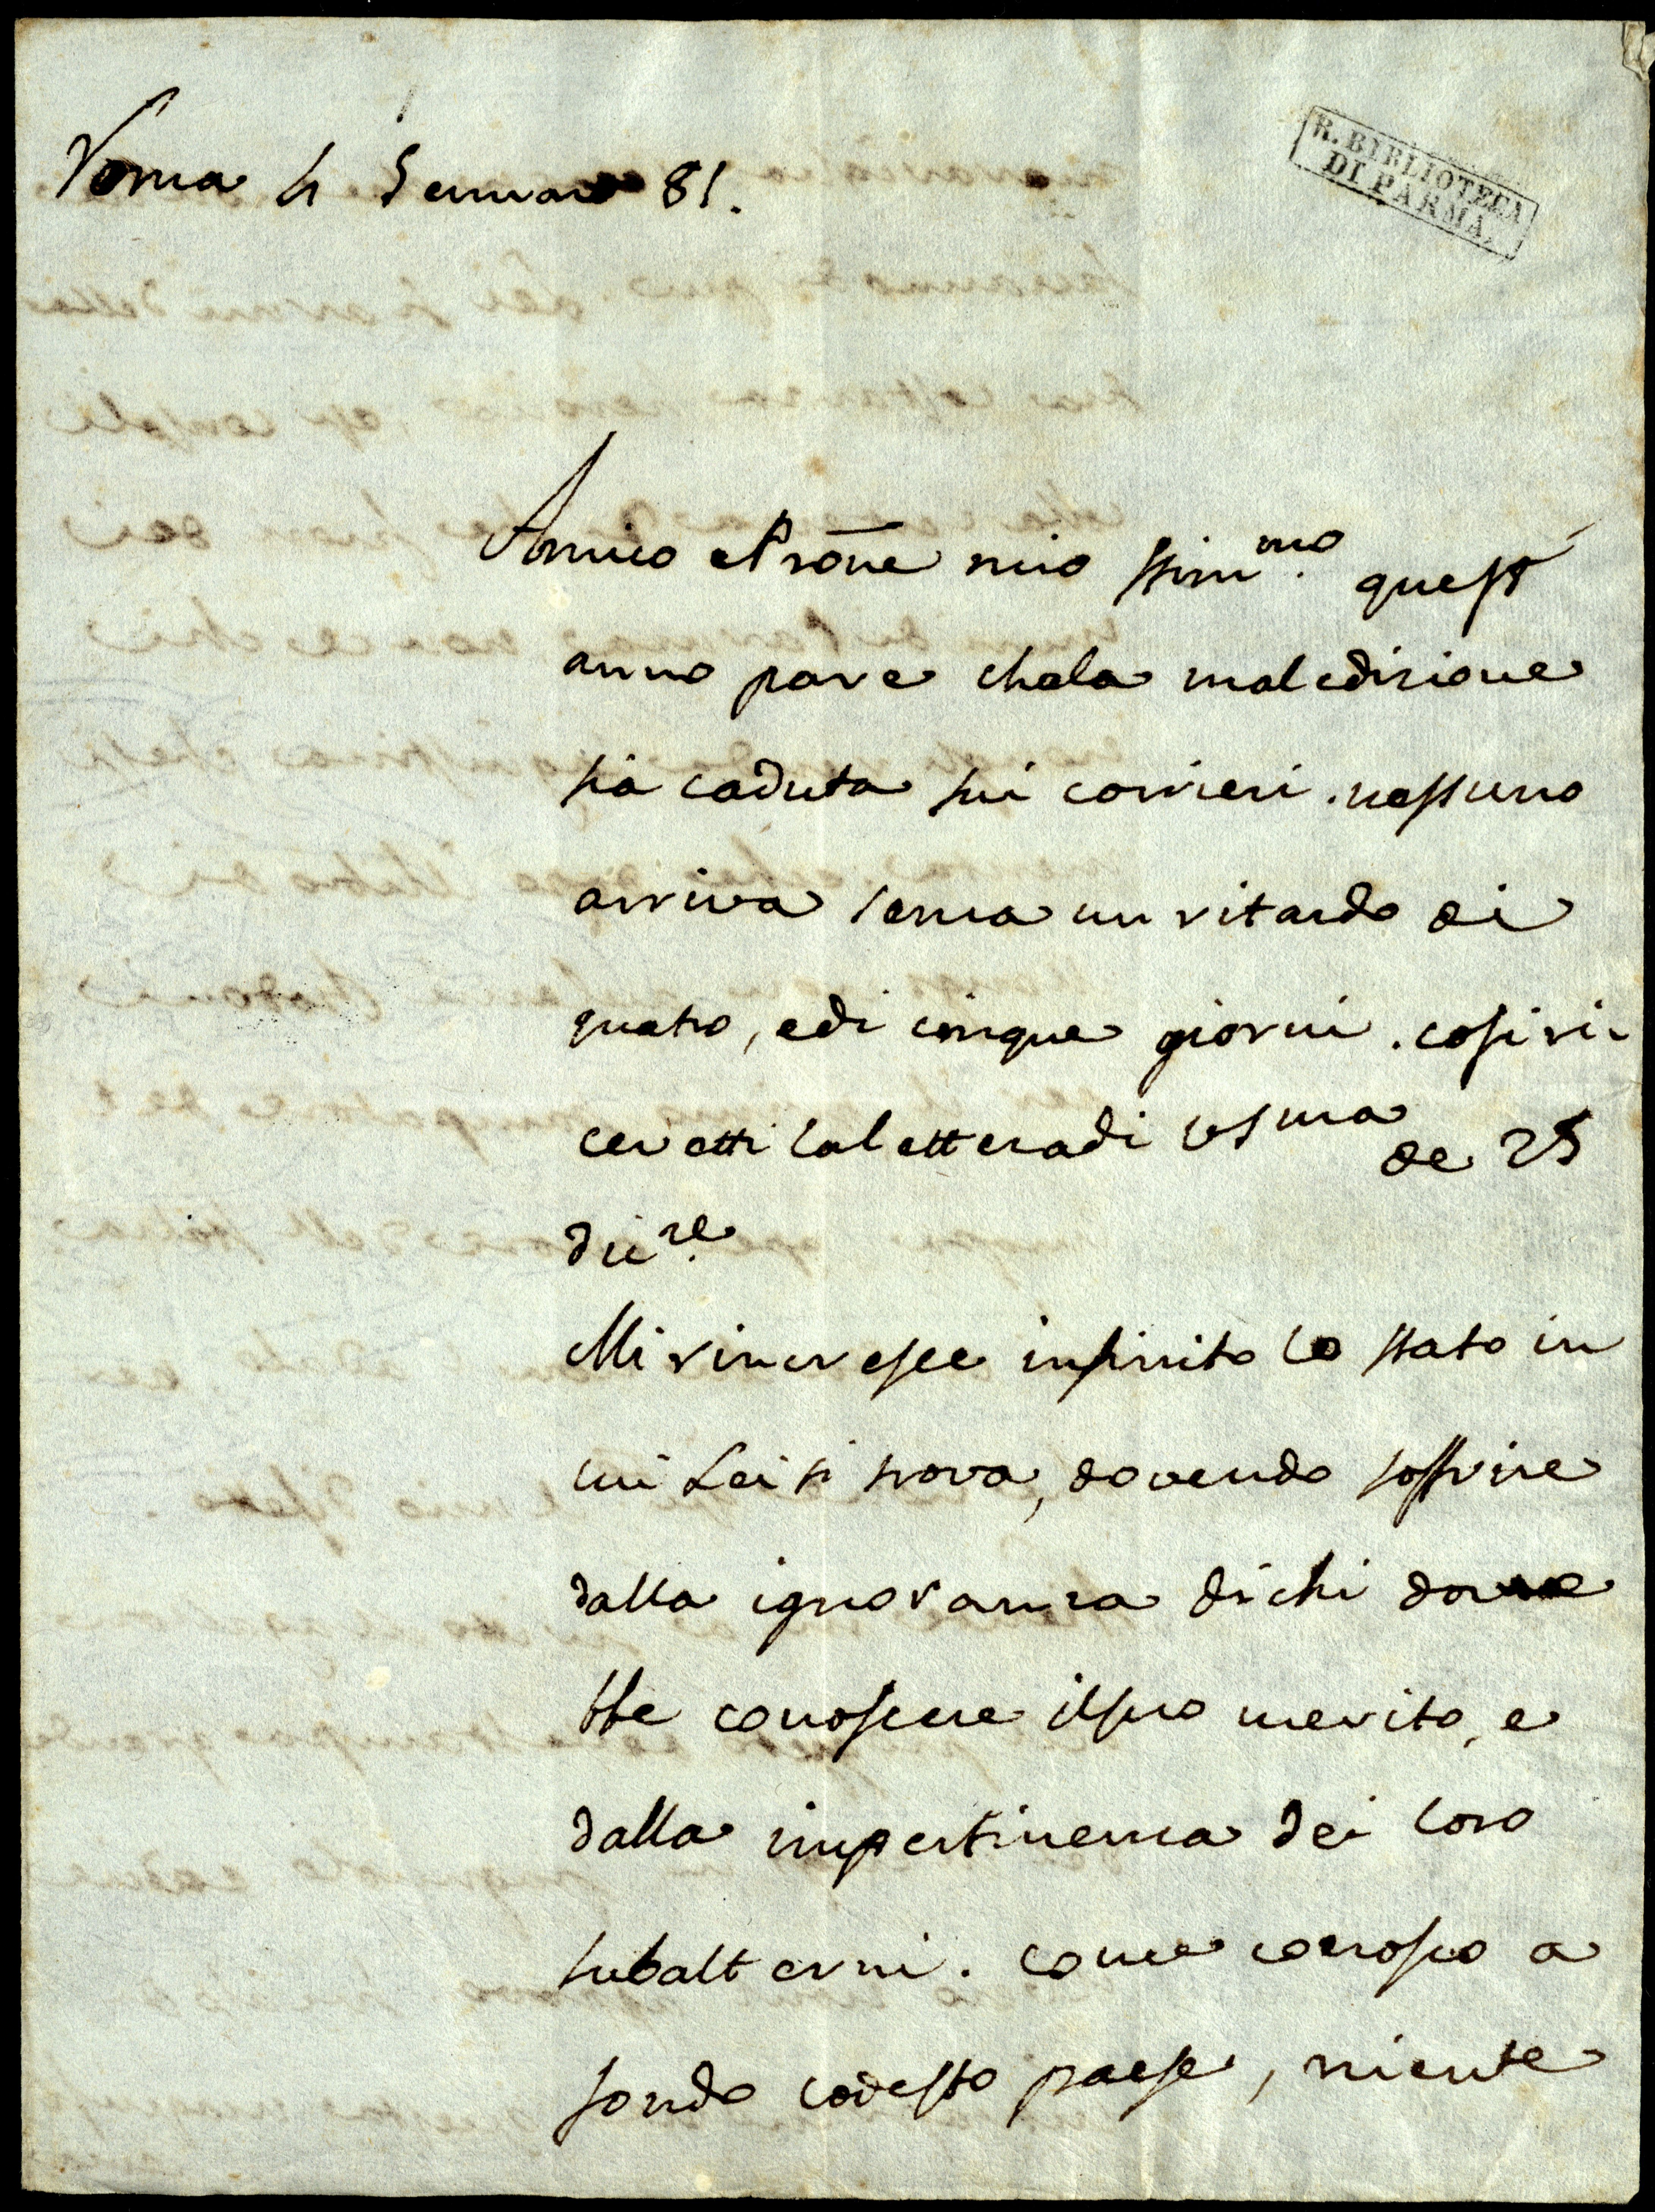 R. BIBLIOTECA
DI PARMA.
Roma 4 Gennaro 81.
Amico e Prõne mio stim.mo quest'
anno pare che la maledizione
sia caduta sui corrieri. nessuno
arriva senza un ritardo di
quatro, e di cinque giorni. così ri-
cevetti la lettera di vs ma de 25
dic.re
Mi rincresce infinito lo stato in
cui Lei si trova, dovendo soffrire
dalla ignoranza di chi dovre
bbe conoscere il suo merito, e
dalla impertinenza dei loro
subalterni. come conosco a
fondo codesto paese, niente